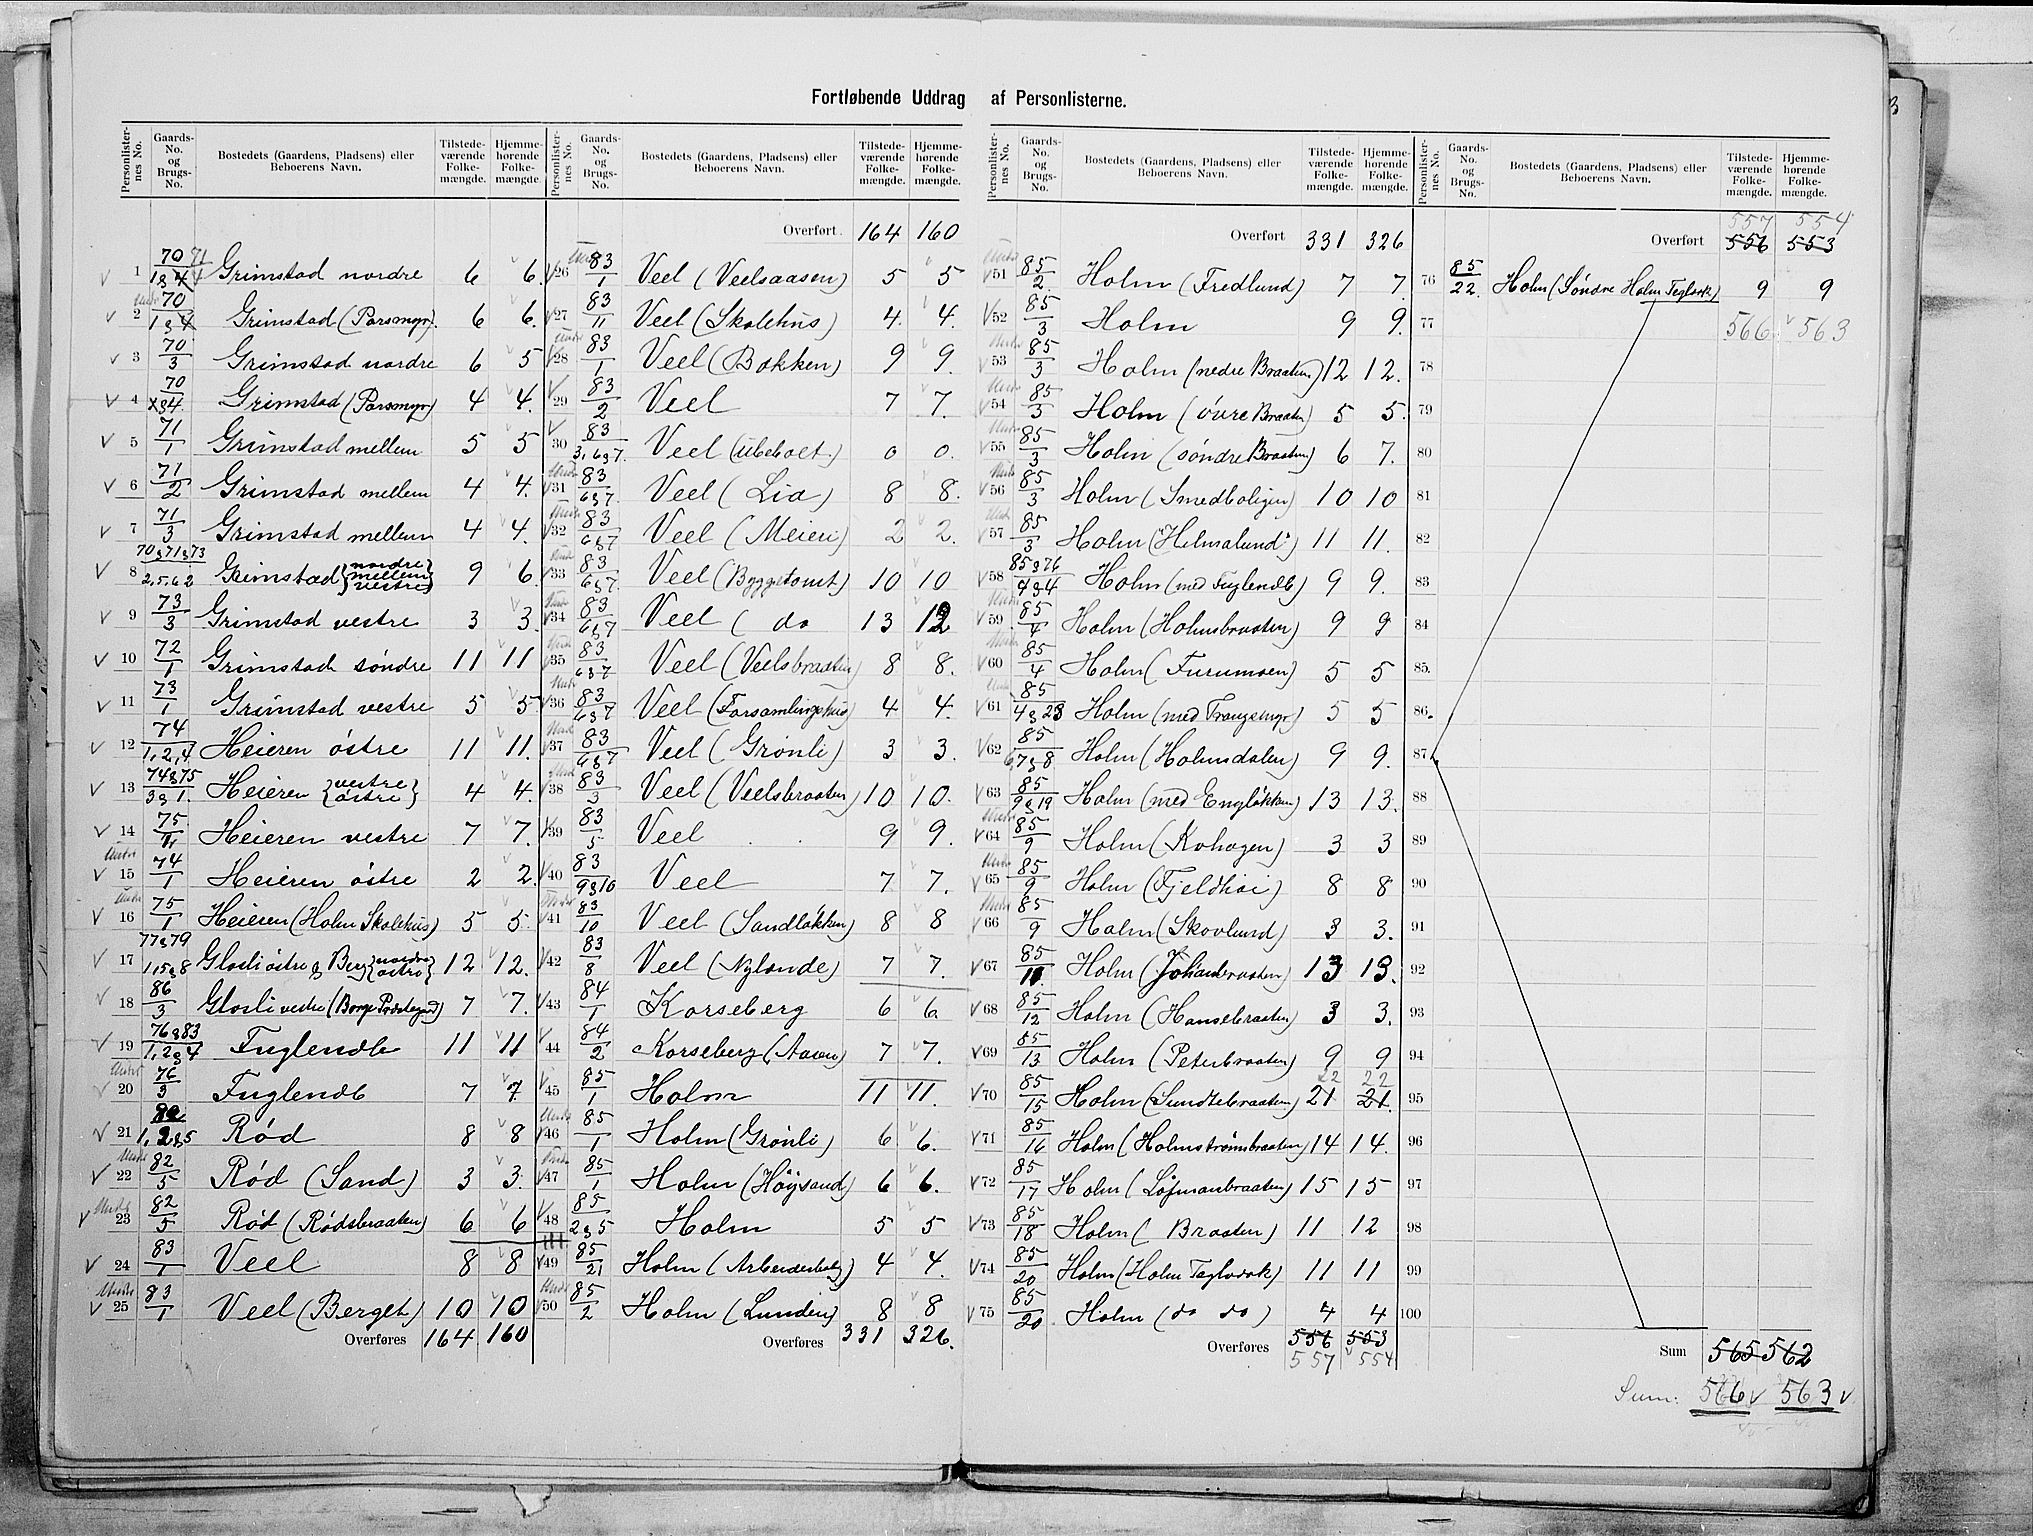 Fortløbende Uddrag af Personlisterne.
Personlisternes No. | Gaards-No. og Brugs-No. | Bostedets (Gaardens, Pladsens) eller Beboerens Navn. | Tilstedeværende Folkemængde. | Hjemmehørende Folkemængde.
1 70 71/1&4 Grimstad nordre 6 6.
2 70/1&4 Grimstad (Parsmyr). 6 6.
3 70/3 Grimstad nordre 6 5
4 70/&4. Grimstad (Parsmyr) 4 4.
5 71/1 Grimstad mellem 5 5
6 71/2 Grimstad mellem 4 4.
7 71/3 Grimstad mellem 4 4.
8 70&71&73/2,5.62 Grimstad {nordre mellem vestre} 9 6.
9 73/3 Grimstad vestre 3 3.
10 72/1 Grimstad søndre 11 11
11 73/1 Grimstad vestre 5 5
12 74/1,2,4 Heieren østre 11 11.
13 74&75/3&1. Heieren {vestre østre} 4 4.
14 75/1 Heieren vestre 7 7.
15 74/1 Heieren østre 2 2.
16 75/1 Heieren (Holm Skolehus) 5 5.
17 77&79/1,5&8 Glosli østre & Berg {nordre østre} 12 12.
18 86/3 Glosli vestre (Borge Præstegaard) 7 7.
19 76&83/1,2&4 Fuglendb 11 11
20 76/3 Fuglendb 7 7
21 82/1,2&5 Rød 8 8
22 82/5 Rød (Sand) 3 3.
23 82/5 Rød (Rødsbraaten) 6 6
24 83/1 Veel 8 8
25 83/1 Veel (Berget) 10 10
Overføres 164 160
Overført 164 160
26 83/1 Veel (Veelsaasen) 5 5
27 83/11 Veel (Skolehus) 4. 4.
28 83/1 Veel (Bakken) 9 9.
29 83/2 Veel 7 7.
30 83/3,6&7. Veel (ubeboet.) 0 0.
31 83/6&7. Veel (Lia) 8 8.
32 83/6&7 Veel (Meieri) 2 2.
33 83/6&7. Veel (Byggetomt) 10 10
34 83/6&7 Veel ( do 13 12
35 83/6&7 Veel (Veelsbraaten) 8 8.
36 83/6&7 Veel (Forsamlingshus) 4 4.
37 83/6&7 Veel (Grønli) 3 3.
38 83/3 Veel (Veelsbraaten) 10 10.
39 83/5 Veel 9 9.
40 83/9&10 Veel 7 7.
41 83/10 Veel (Sandløkken) 8 8
42 83/8 Veel (Nylænde) 7 7.
43 84/1 Korseberg 6 6
44 84/2 Korseberg (Aasen) 7 7.
45 85/1 Holm 11 11.
46 85/1 Holm (Grønli) 6 6.
47 85/1 Holm (Høysand) 6 6.
48 85/2&5 Holm 5 5
49 85/21 Holm (Arbeiderbolig) 4 4.
50 85/2 Holm (Lunden) 8 8
Overføres 331 326.
Overført 331 326
51 85/2. Holm (Fredlund) 7 7.
52 85/3 Holm 9 9.
53 85/3 Holm (nedre Braaten) 12 12.
54 85/3 Holm (øvre Braaten) 5 5.
55 85/3 Holm (søndre Braaten) 6 7.
56 85/3 Holm (Smedboligen) 10 10
57 85/3 Holm ("Helmsalund") 11 11.
58 85&76/4&4 Holm (med Fuglendb) 9 9.
59 85/4 Holm (Holmsbraaten) 9 9
60 85/4 Holm (Furumoen) 5 5
61 85/4&23 Holm (med Trangsmyr) 5 5
62 85/6,7&8 Holm (Holmsdalen) 9 9.
63 85/9&19 Holm (med Engløkken) 13 13.
64 85/9 Holm (Kohagen) 3 3
65 85/9 Holm (Fjeldhøi) 8 8
66 85/9 Holm (Skovlund) 3 3.
67 85/11. Holm (Johanbraaten) 13 13.
68 85/12 Holm (Hansebraaten) 3 3.
69 85/13 Holm (Peterbraaten) 9 9
22 22
70 85/15 Holm (Sundtebraaten) 21 21.
71 85/16 Holm (Holmstrømbraaten) 14 14.
72 85/17 Holm (Løfmanbraaten) 15 15
73 85/18 Holm ( Braaten) 11 12
74 85/20 Holm (Holm Teglværk) 11 11
75 85/20 Holm (do do) 4 4
Overføres 556 553
557 554
557 554
Overført 556 553
76 85/22. Holm (Søndre Holm Teglværk) 9 9
77 566 563
78
79
80
81
82
83
84
85.
86.
87
88
89
90
91
92
93
94
95
96
97
98
99
100
Sum 565 562
Sum: 566 563